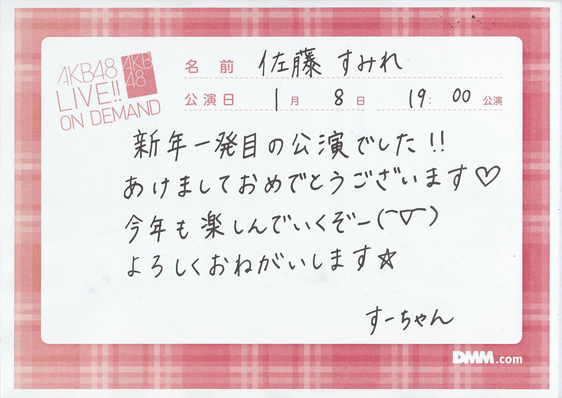 AKB48
LIVE!!
ON DEMAND
AKB
48
名前 佐藤 すみれ
公演日 1月 8日 19:00 公演
新年一発目の公演でした!!
あけましておめでとうございます♡
今年も楽しんでいくぞー(⌒▽⌒)
よろしくおねがいします☆
すーちゃん
DMM.com